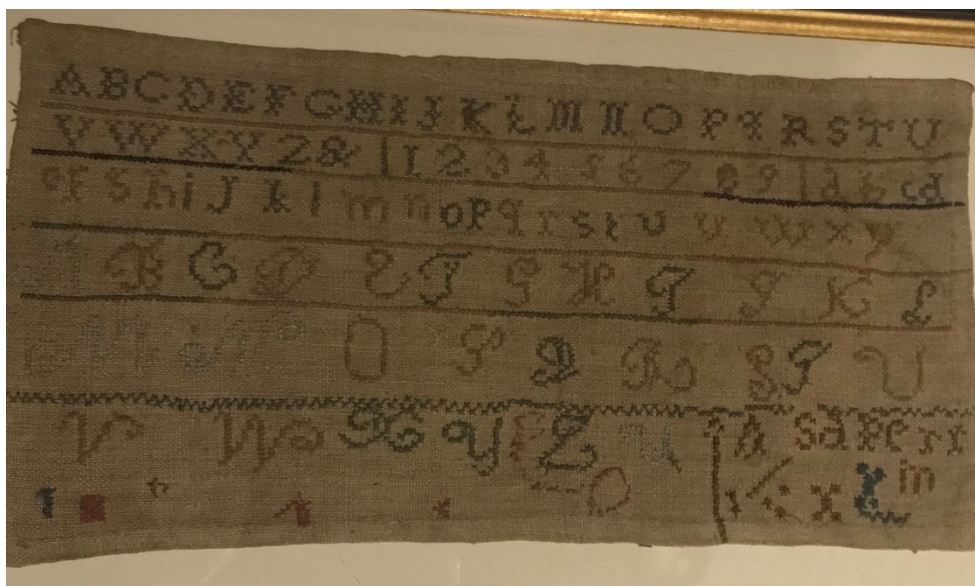 A B C D E F G H I J K L M N O P q R S T U
V W X Y Z & 1 2 3 4 5 6 7 8 9 a b c d
e f g h i J k l m n o p q r s t u v w x y
A B C D E F G H I J K L
M N O P Q R S T U
V W X Y Z
in